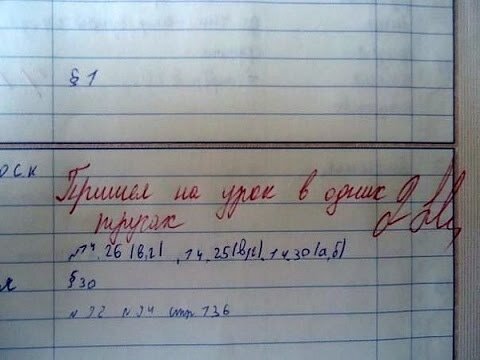 § 1
оск
Пришел на урок в одних 2
тругах
№14.26(в,г), 14.25(в,г), 14.30(а,б)
§ 30
я
№ 92 № 94 стр 136